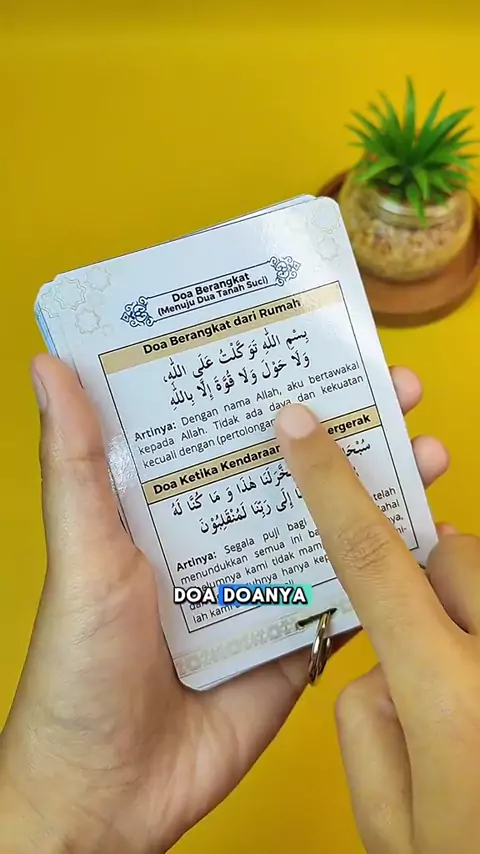 Doa Berangkat
(Menuju Dua Tanah Suci)
Doa Berangkat dari Rumah
بِسْمِ اللهِ تَوَكَّلْتُ عَلَى اللهِ،
وَلَا حَوْلَ وَلَا قُوَّةَ إِلَّا بِاللهِ
Artinya: Dengan nama Allah, aku bertawakal
kepada Allah. Tidak ada daya dan kekuatan
kecuali dengan (pertolongan
Doa Ketika Kendaraan ergerak
هٰذَا وَ مَا كُنَّا لَهُ
إِلَى رَبِّنَا لَمُنْقَلِبُوْنَ
Artinya: Segala puji bagi telah
menundukkan semua ini ba
elumnya kami tidak mam
hanya kep
lah kam
DOA DOANYA